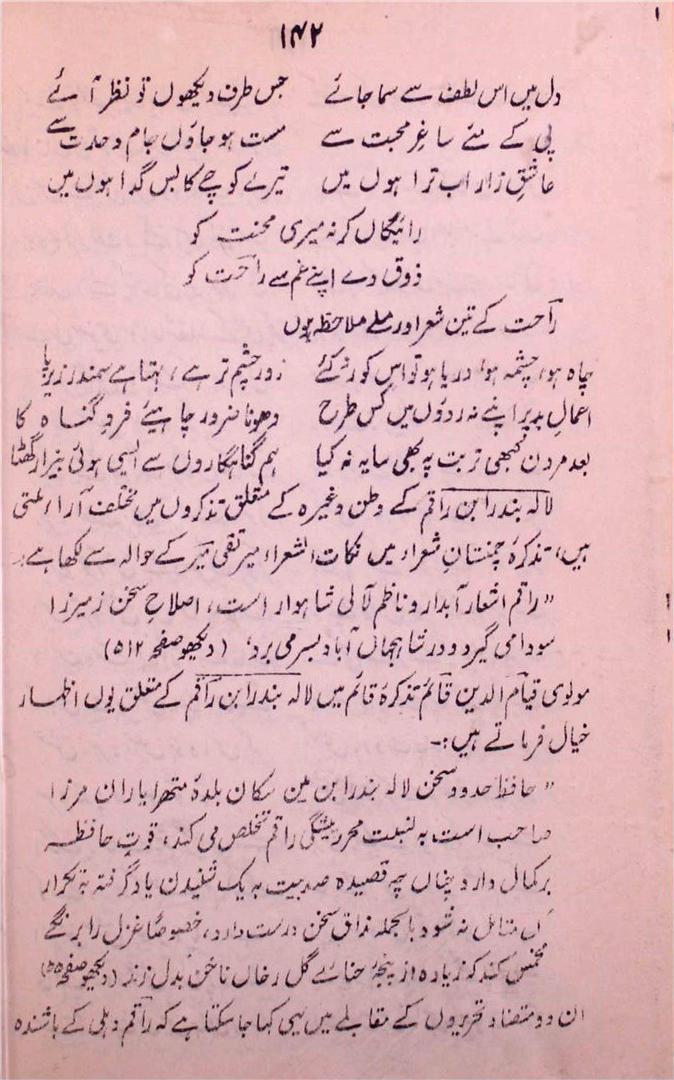 ۱۴۲
دل میں اس لطف سے سما جائے جس طرف دیکھوں تو نظر آئے
پی کے مئے ساغرِ محبت سے مست ہو جاؤں جام وحدت سے
عاشقِ زار اب ترا ہوں میں تیرے کوچے کا بس گدا ہوں میں
رائیگاں کر نہ میری محنت کو
ذوق دے اپنے غم سے راحت کو
راحت کے تین شعر اور ملے ملاحظہ ہوں
چاہ ہو، چشمہ ہو، دریا ہو تو اس کو روکئے زور چشم تر ہے، بہتا ہے سمندر زیرِ پا
اعمالِ بد پر اپنے نہ روؤں میں کس طرح دھونا ضرور چاہیئے فردِ گناہ کا
بعد مردن کبھی تربت پہ بھی سایہ نہ کیا ہم گناہگاروں سے ایسی ہوئی بیزار گھٹا
لالہ بندرابن راقم کے وطن وغیرہ کے متعلق تذکروں میں مختلف آراء ملتی
ہیں، تذکرۂ چمنستانِ شعراء میں نکات الشعراء میر تقی میر کے حوالہ سے لکھا ہے:۔
"راقم اشعار آبدار و ناظم لآلی شاہوار است، اصلاحِ سخن ز میرزا
سودا می گیرد و در شاہجہاں آباد بسر می برد، (دیکھو صفحہ ۵۱۲)
مولوی قیام الدین قائم تذکرۂ قائم میں لالہ بندرابن راقم کے متعلق یوں اظہار
خیال فرماتے ہیں:۔
"حافظ حدود سخن لالہ بندرابن من سکان بلدۂ متھرا یاران مرزا
صاحب است بہ نسبت محرر پیشگی راقم تخلص می کند، قوتِ حافظہ
بر کمال دارد چناں چہ قصیدہ صد بیت بہ یک شنیدن یاد گرفتہ بہ تکرار
آں متامل نہ شود بالجملہ مذاق سخن درست دارد، خصوصاً غزل را بر نگے
مخمس کند کہ زیادہ از پنجۂ حنائے گل رخاں ناخن بدل زند (دیکھو صفحہ
ان دو متضاد تحریروں کے مقابلے میں یہی کہا جا سکتا ہے کہ راقم دہلی کے باشندہ